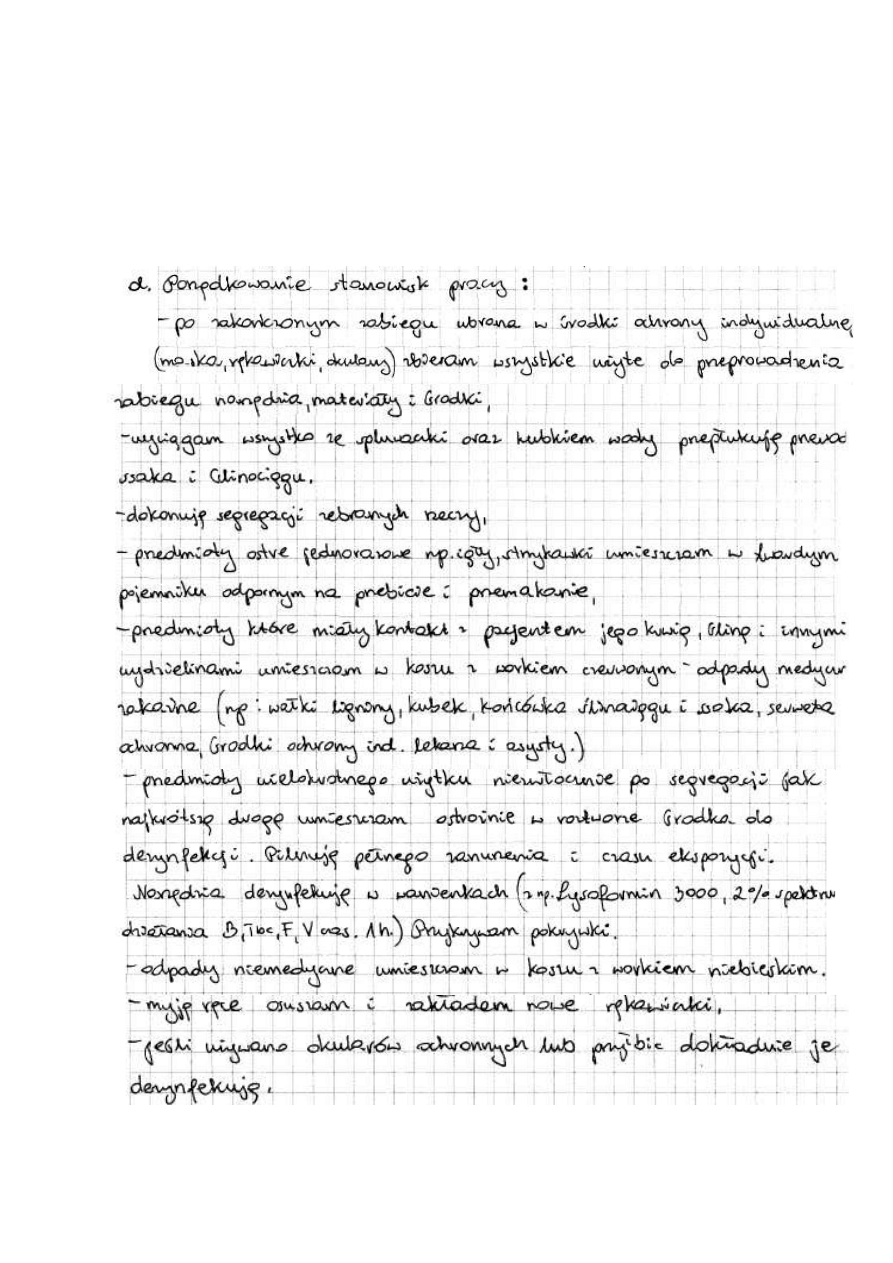 d. Porządkowanie stanowisk pracy :
- po zakończonym zabiegu ubrana w środki ochrony indywidualnej
(maska, rękawiczki, okulary) zbieram wszystkie użyte do przeprowadzenia
zabiegu narzędzia, materiały i środki,
- wyciągam wszystko ze spluwaczki oraz kubkiem wody przepłukuję przewod
ssaka i ślinociągu.
- dokonuję segregacji zebranych rzeczy,
- przedmioty ostre jednorazowe np. igły, strzykawki umieszczam w twardym
pojemniku odpornym na przebicie i przemakanie,
- przedmioty które miały kontakt z pacjentem jego krwią, śliną i innymi
wydzielinami umieszczam w koszu z workiem czerwonym - odpady medyczn
zakaźne (np : wałki ligniny, kubek, końcówka ślinociągu i ssaka, serweta
ochronna, środki ochrony ind. lekarza i asysty.)
- przedmioty wielokrotnego użytku niezwłocznie po segregacji jak
najkrótszą drogą umieszczam ostrożnie w roztworze środka do
dezynfekcji. Pilnuję pełnego zanurzenia i czasu ekspozycji.
Narzędzia dezynfekuję w wanienkach (z np. Lysoformin 3000, 2% spektru
działania B, Tbc, F, V czas. 1h.) Przykrywam pokrywki.
- odpady niemedyczne umieszczam w koszu z workiem niebieskim.
- myję ręce osuszam i zakładam nowe rękawiczki.
- jeśli używano okularów ochronnych lub przyłbic dokładnie je
dezynfekuję.